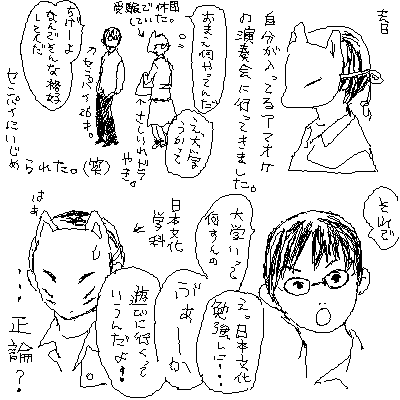 自分が入ってるアマオケ
の演奏会に行ってきました。
受験で休団
していた。
おまえ何やってんだ
え、大学
うかって
さしいれドラ
やき。
センパイ26才。
ちげーよ
なんでそんな格好
してんだ
センパイにいじめ
られた。(笑)
それで
大学いって
何すんの
え。日本文化
勉強しに・・
ぶぁーか
遊びに行くって
いうんだよ!
日本文化
学科
はぁ
・・・正論?